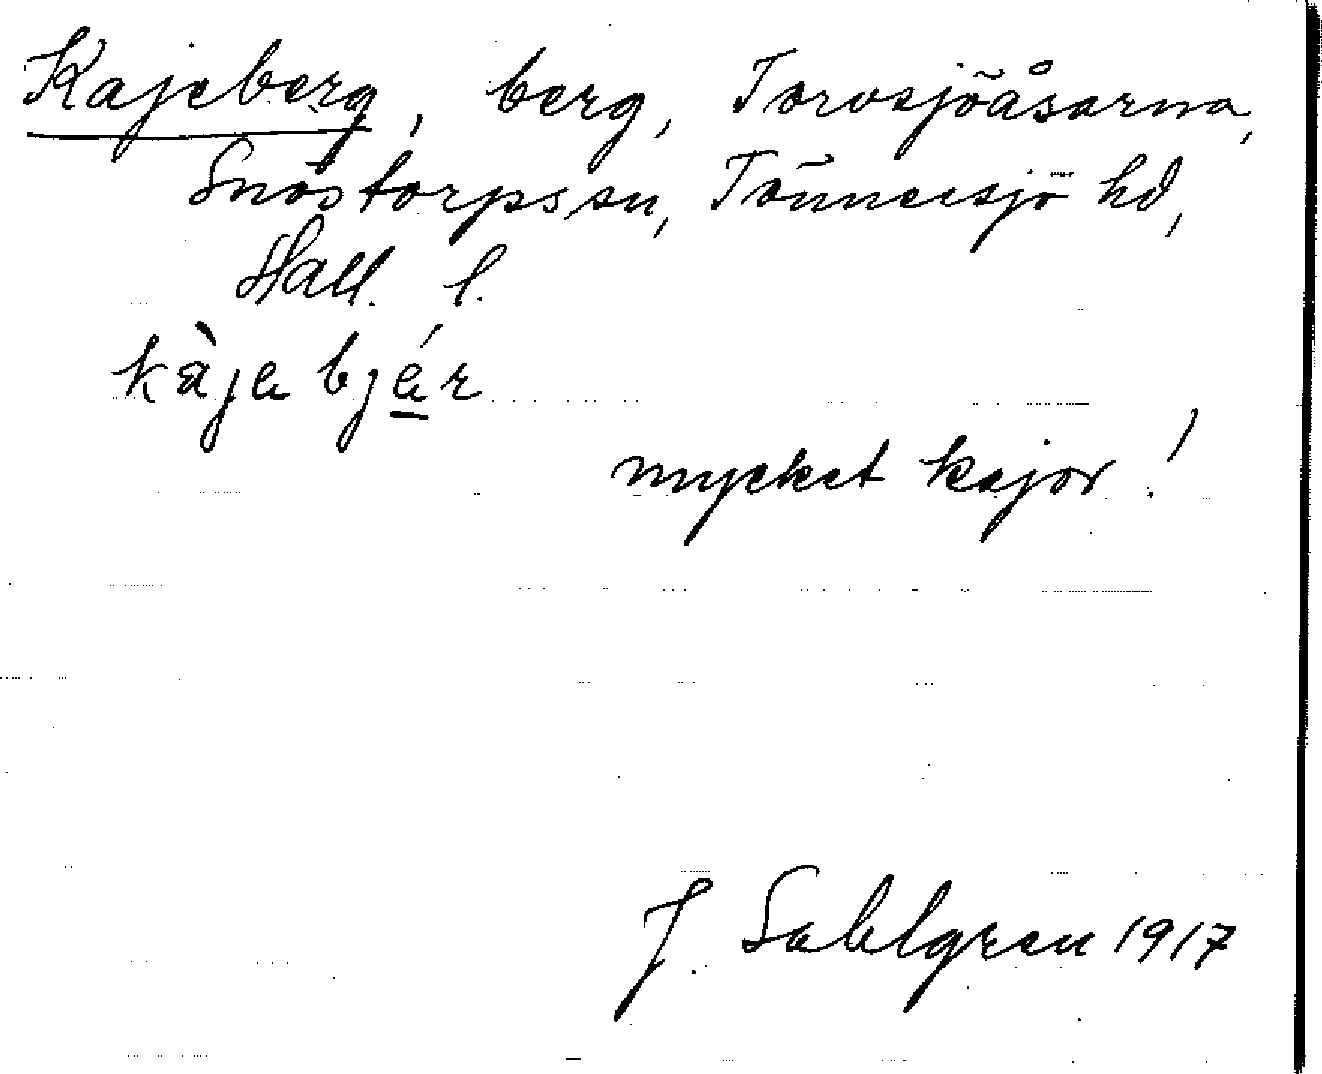 Kajeberg, berg, Torvsjöåsarna,
Snöstorps sn, Tönnersjö hd,
Hall. l.
kàja bjár
mycket kajor!
J. Sahlgren 1917